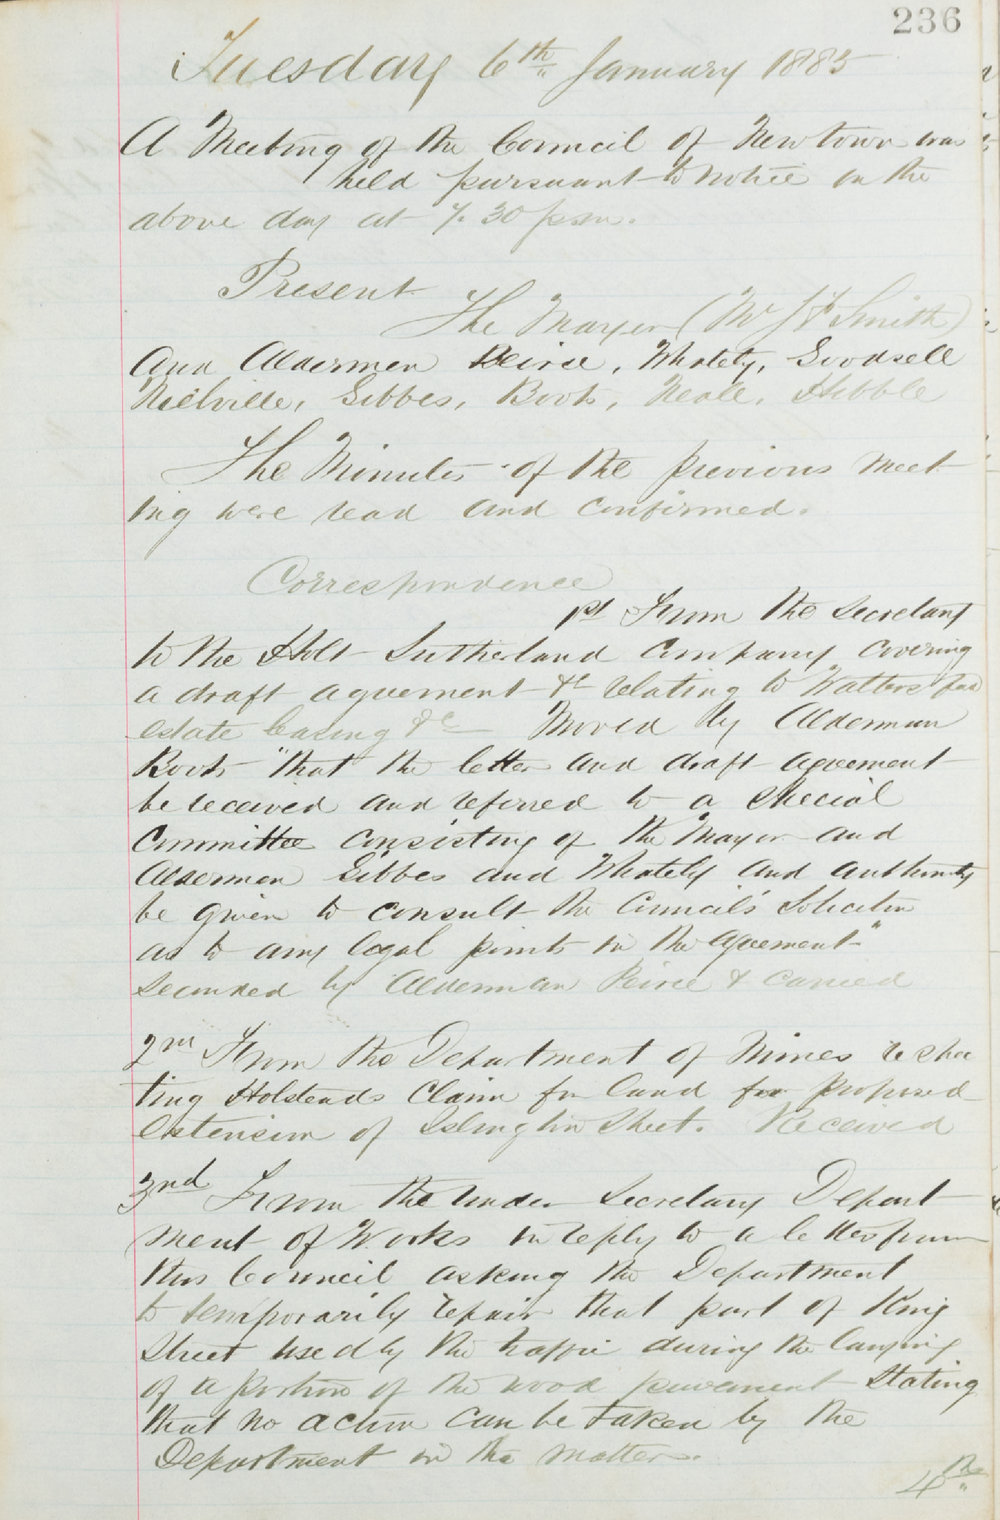 236
Tuesday 6th January 1885
A Meeting of the Council of Newtown was
held pursuant to notice on the
above day at 7.30 p.m.
Present
The Mayor (Mr J F Smith)
And Aldermen Peirce, Whately, Goodsell
Melville, Gibbes, Boots, Neale, Hibble
The Minutes of the previous meet
ing were read and confirmed.
Correspondence
1st From the Secretary
to the Holt Sutherland Company covering
a draft agreement &c relating to Watters
estate leasing &c Moved by Alderman
Boots "that the letter and draft agreement
be received and referred to a special
Committee consisting of the Mayor and
Aldermen Gibbes and Whately and authority
be given to consult the Council's Solicitor
as to any legal points in the agreement"
seconded by Alderman Peirce & carried
2nd From the Department of Mines respec
ting Holsteads Claim for land for proposed
Extension of Islington Street. Received
3rd From the Under Secretary Depart
ment of Works in reply to a letter from
this Council asking the Department
to temporarily repair that part of King
Street used by the traffic during the laying
of a portion of the wood pavement stating
that no action can be taken by the
Department in the matter.
4th